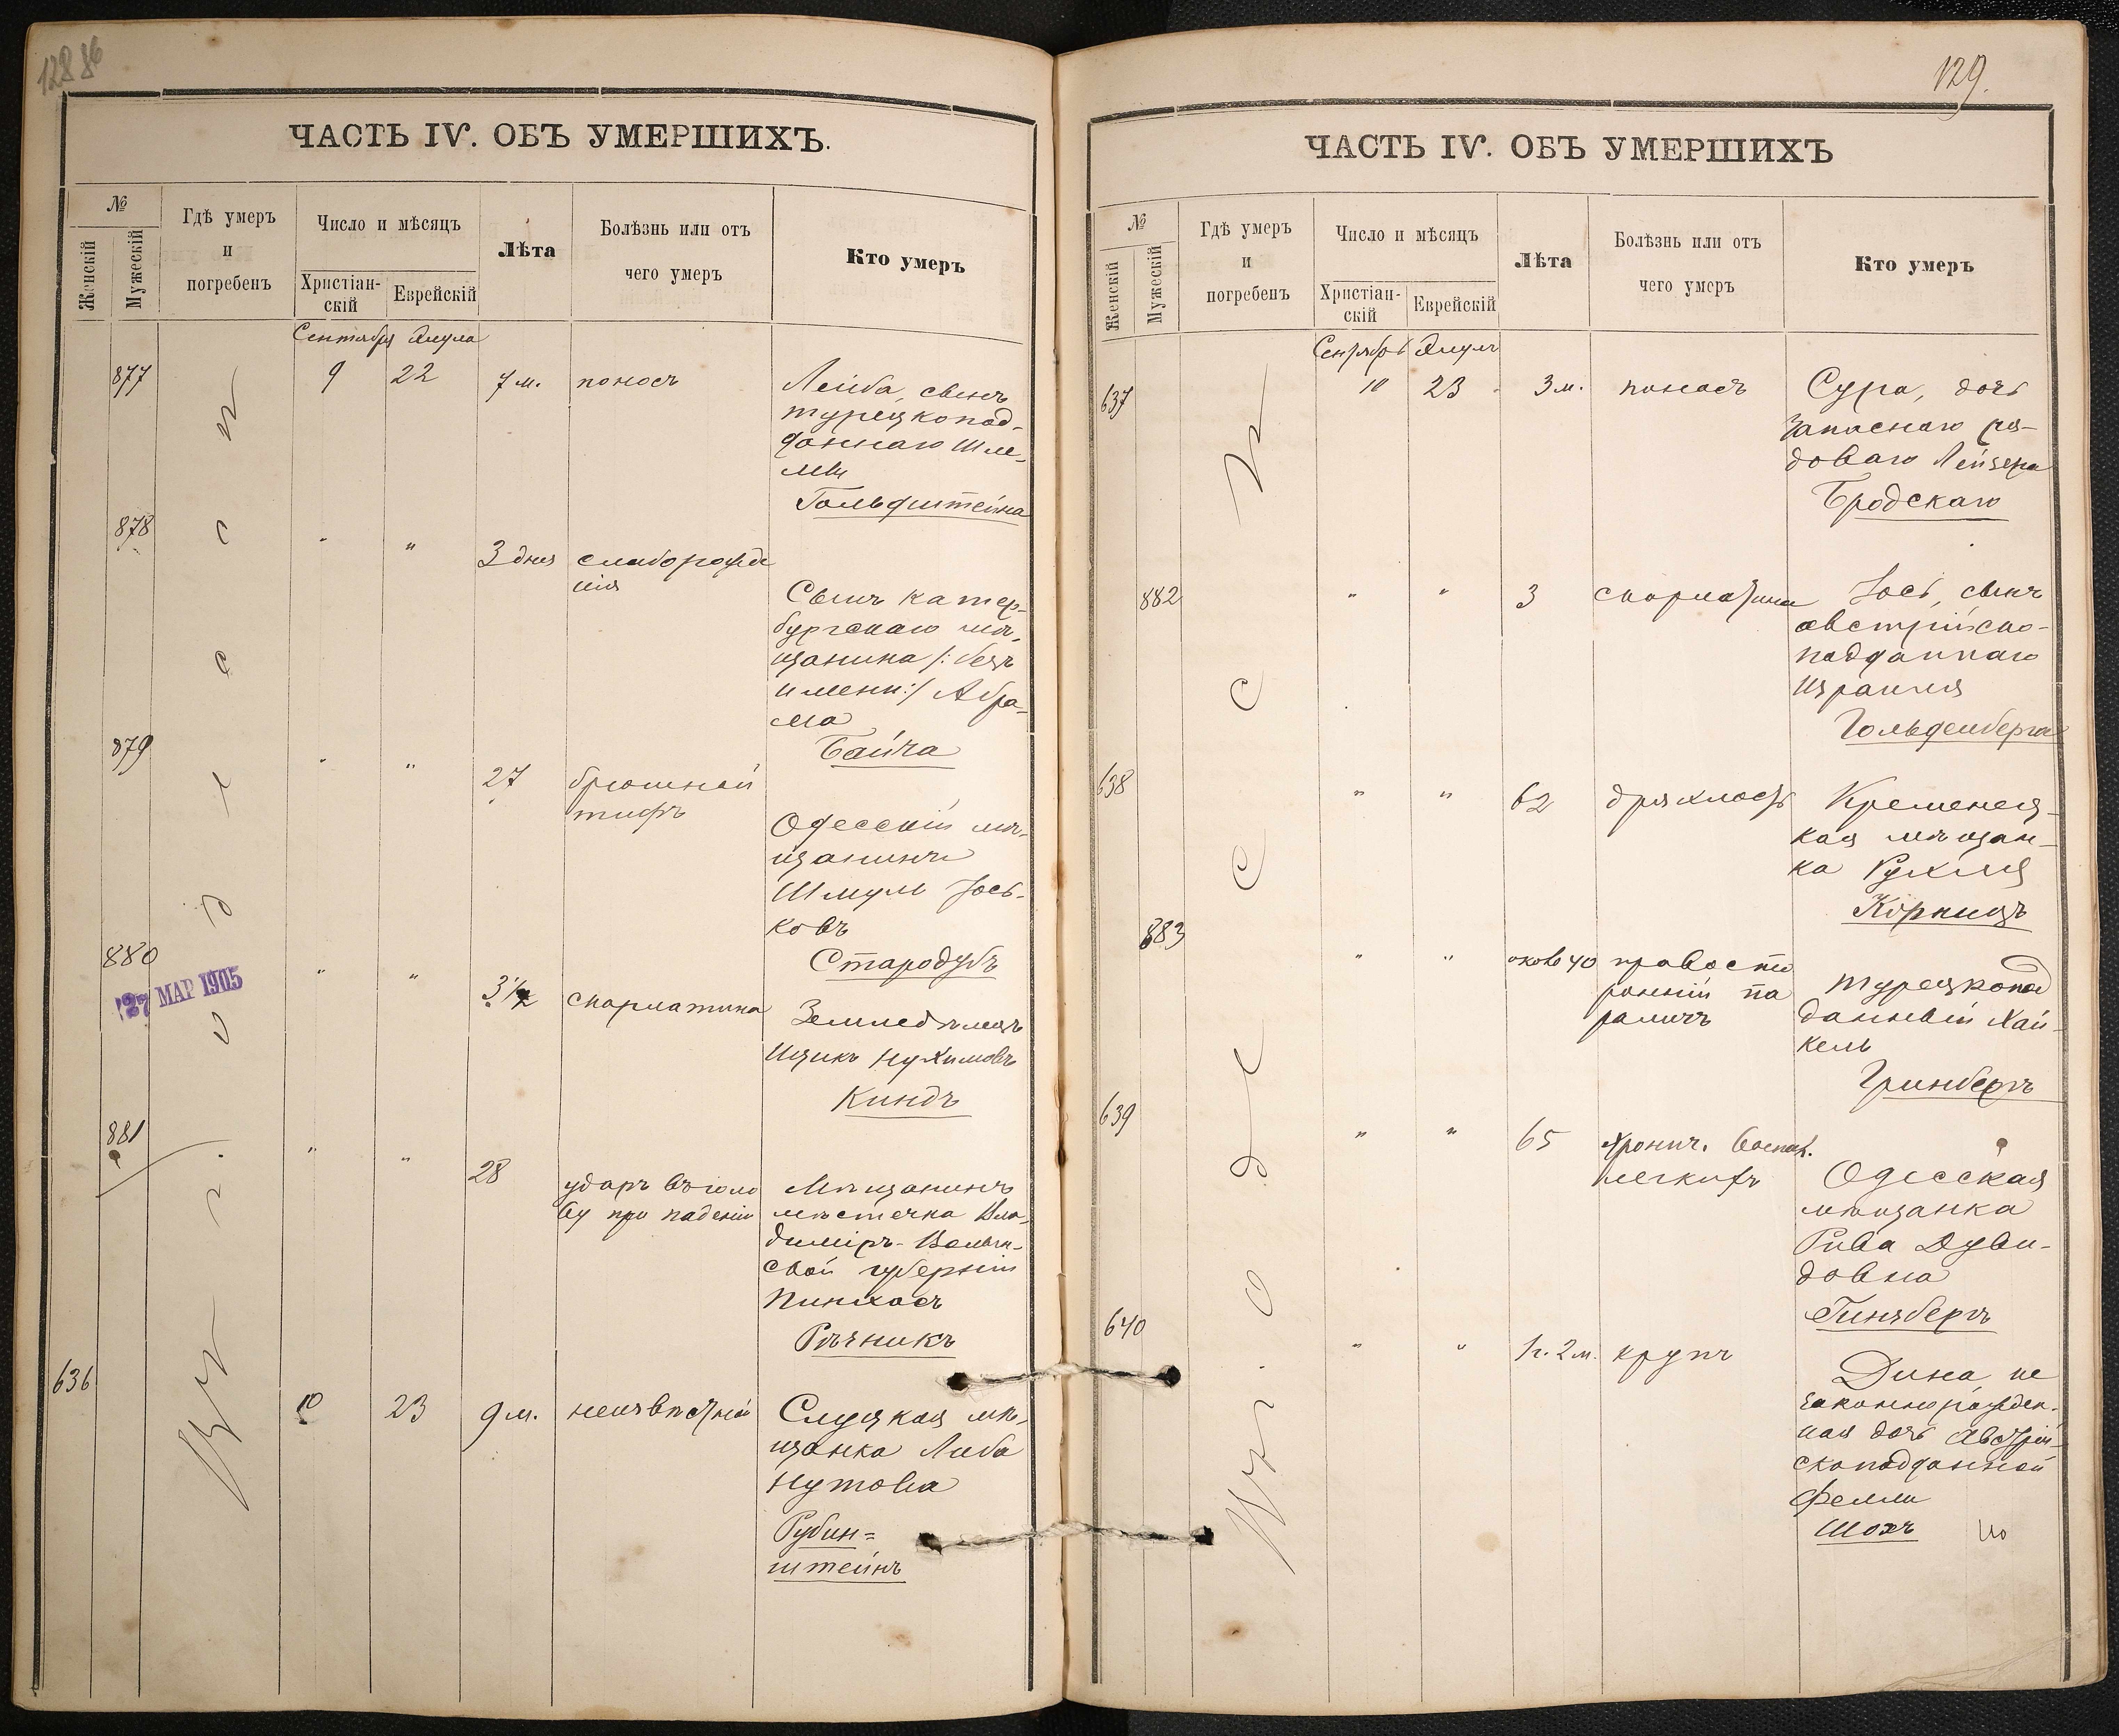 128 86
ЧАСТЬ IV. ОБЪ УМЕРШИХЪ.
№
Женскій
Мужескій
Гдѣ умеръ
и
погребенъ
Число и мѣсяцъ
Христіан-
скій
Еврейскій
Лѣта
Болѣзнь или отъ
чего умеръ
Кто умеръ
Сентября Элула
877 9 22 7 м. поносъ Лейба, сынъ
турецкопод-
даннаго Шле-
мы
Гольдштейна
878 " " 3 дня слаборожде
нія
Сынъ катер-
бургскаго мѣ-
щанина /: безъ
имени :/ Абра-
ма
Байча
879 " " 27 брюшной
тифъ
Одесскій мѣ-
щанинъ
Шмуль Іось-
ковъ
Стародубъ
880 " " 3 1/2 скарлатина
27 МАР 1905
Земледѣлецъ
Ицикъ Нухимовъ
Киндъ
881 " " 28 ударъ въ голо
ву при паденіи
Мѣщанинъ
мѣстечка Вла-
димiръ-Волын-
ской губерніи
Пинхасъ
Рѣчникъ
636 10 23 9 м. неизвѣстной Слуцкая мѣ-
щанка Либа
Нутовна
Рубин=
штейнъ
Одесса
129.
ЧАСТЬ IV. ОБЪ УМЕРШИХЪ
№
Женскій
Мужескій
Гдѣ умеръ
и
погребенъ
Число и мѣсяцъ
Христіан-
скій
Еврейскій
Лѣта
Болѣзнь или отъ
чего умеръ
Кто умеръ
Сентябрь Элулъ
637 10 23 3 м. поносъ Сура, дочь
запаснаго ря-
доваго Лейзера
Бродскаго
882 " " 3 скарлатина Іось, сынъ
австрійско-
подданнаго
Израиля
Гольденберга
638 " " 62 дряхлость Кременец-
кая мѣщан-
ка Рухля
Коркисъ
883 " " около 40 правосто
ронній па
раличъ
Турецкопод
данный Хай-
кель
Гринбергъ
639 " " 65 хронич. воспал.
легкихъ
Одесская
мѣщанка
Рива Дуви-
довна
Гинзбергъ
640 " " 1 г. 2 м. крупъ
Дина, не
законнорожден-
ная дочь Австрій-
скоподданной
Фелли
Шохъ